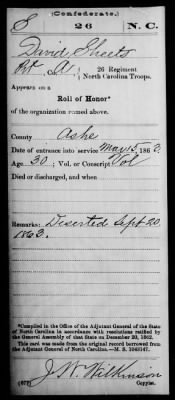 (Confederate.)
S 26 N.C.
David Sheets
Pvt, Co. A, 26 Regiment
North Carolina Troops.
Appears on a
Roll of Honor*
of the organization named above.
County Ashe
Date of entrance into service May 15, 186
Age 30; Vol. or Conscript Vol
Died or discharged, and when
Remarks: Deserted Sept 20,
1863.
*Compiled in the Office of the Adjutant General of the State
of North Carolina in accordance with resolutions ratified by
the General Assembly of that State on December 20, 1862.
This card was made from the original record borrowed from
the Adjutant General of North Carolina.—M. S. 1043147.
J. W. Wilkinson
Copyist.